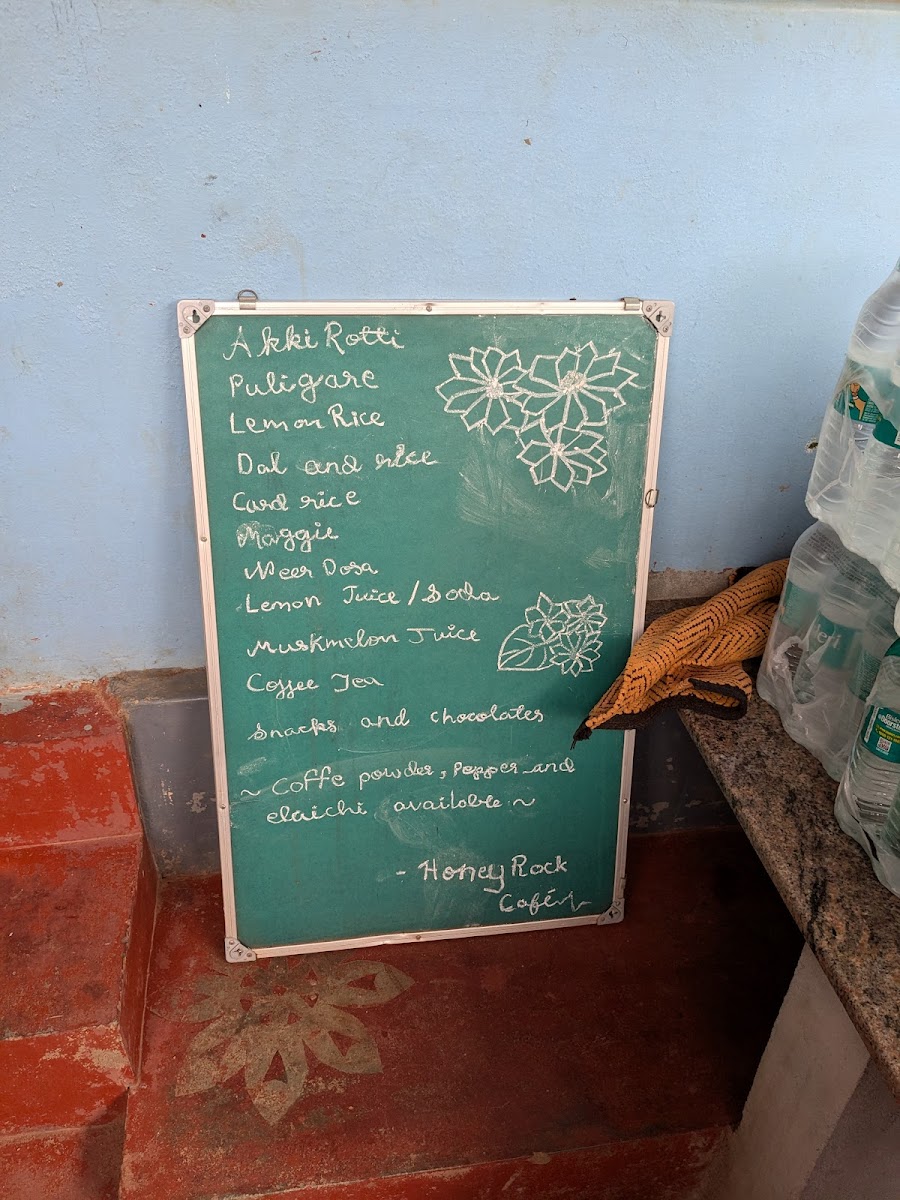 Akki Rotti
Puligare
Lemon Rice
Dal and rice
Card rice
Maggie
Neer Dosa
Lemon Juice / Soda
Muskmelon Juice
Coffee Tea
Snacks and chocolates
~ Coffe powder, Pepper and
elaichi available ~
- Honey Rock
Café